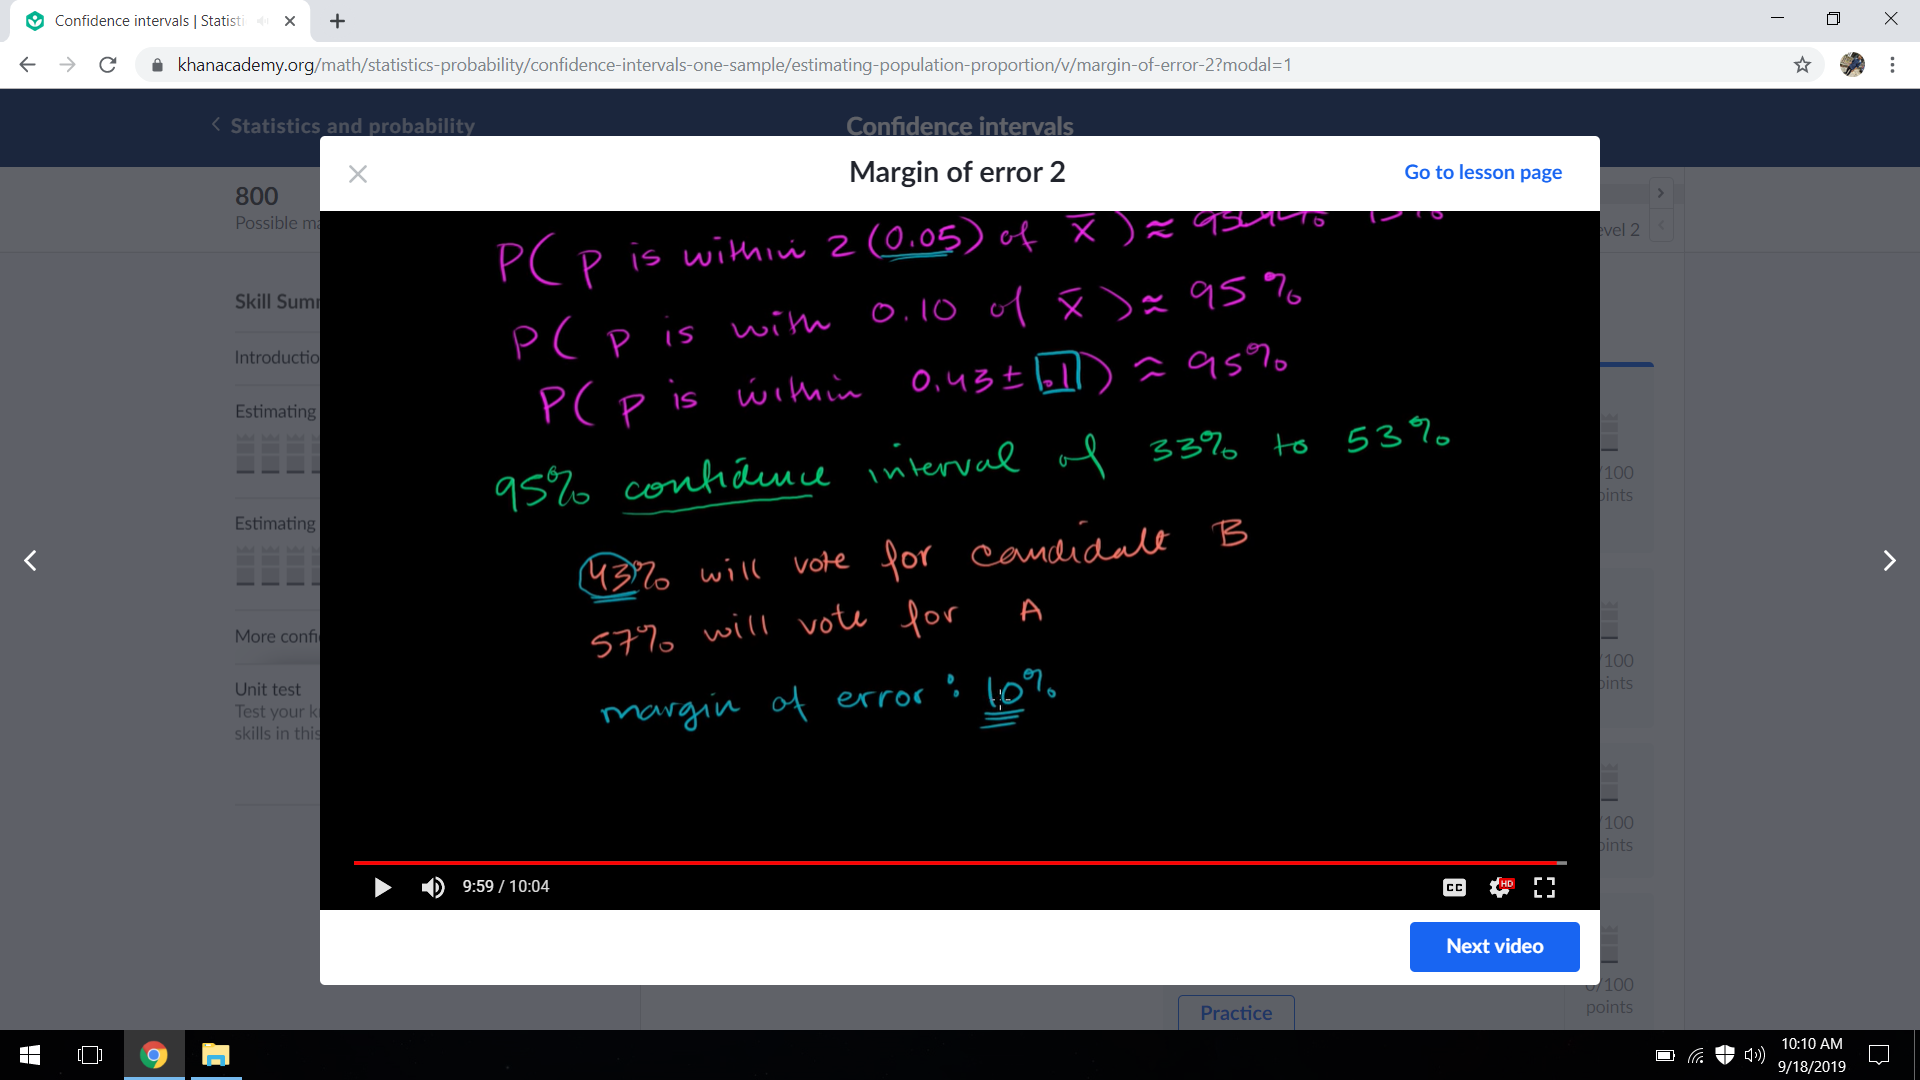 Confidence intervals | Statisti
khanacademy.org/math/statistics-probability/confidence-intervals-one-sample/estimating-population-proportion/v/margin-of-error-2?modal=1
Statistics and probability
Confidence intervals
Margin of error 2
Go to lesson page
800
Possible ma
evel 2
Skill Summ
Introductio
Estimating
Estimating
More confi
Unit test
Test your k
skills in this
P( p is within 2 (0.05) of x̄ ) ≈
P( p is with 0.10 of x̄ ) ≈ 95%
P( p is within 0.43 ± .1 ) ≈ 95%
95% confidence interval of 33% to 53%
43% will vote for candidate B
57% will vote for A
margin of error : 10%
/100
oints
/100
oints
/100
oints
0/100
points
9:59 / 10:04
CC
HD
Next video
Practice
10:10 AM
9/18/2019